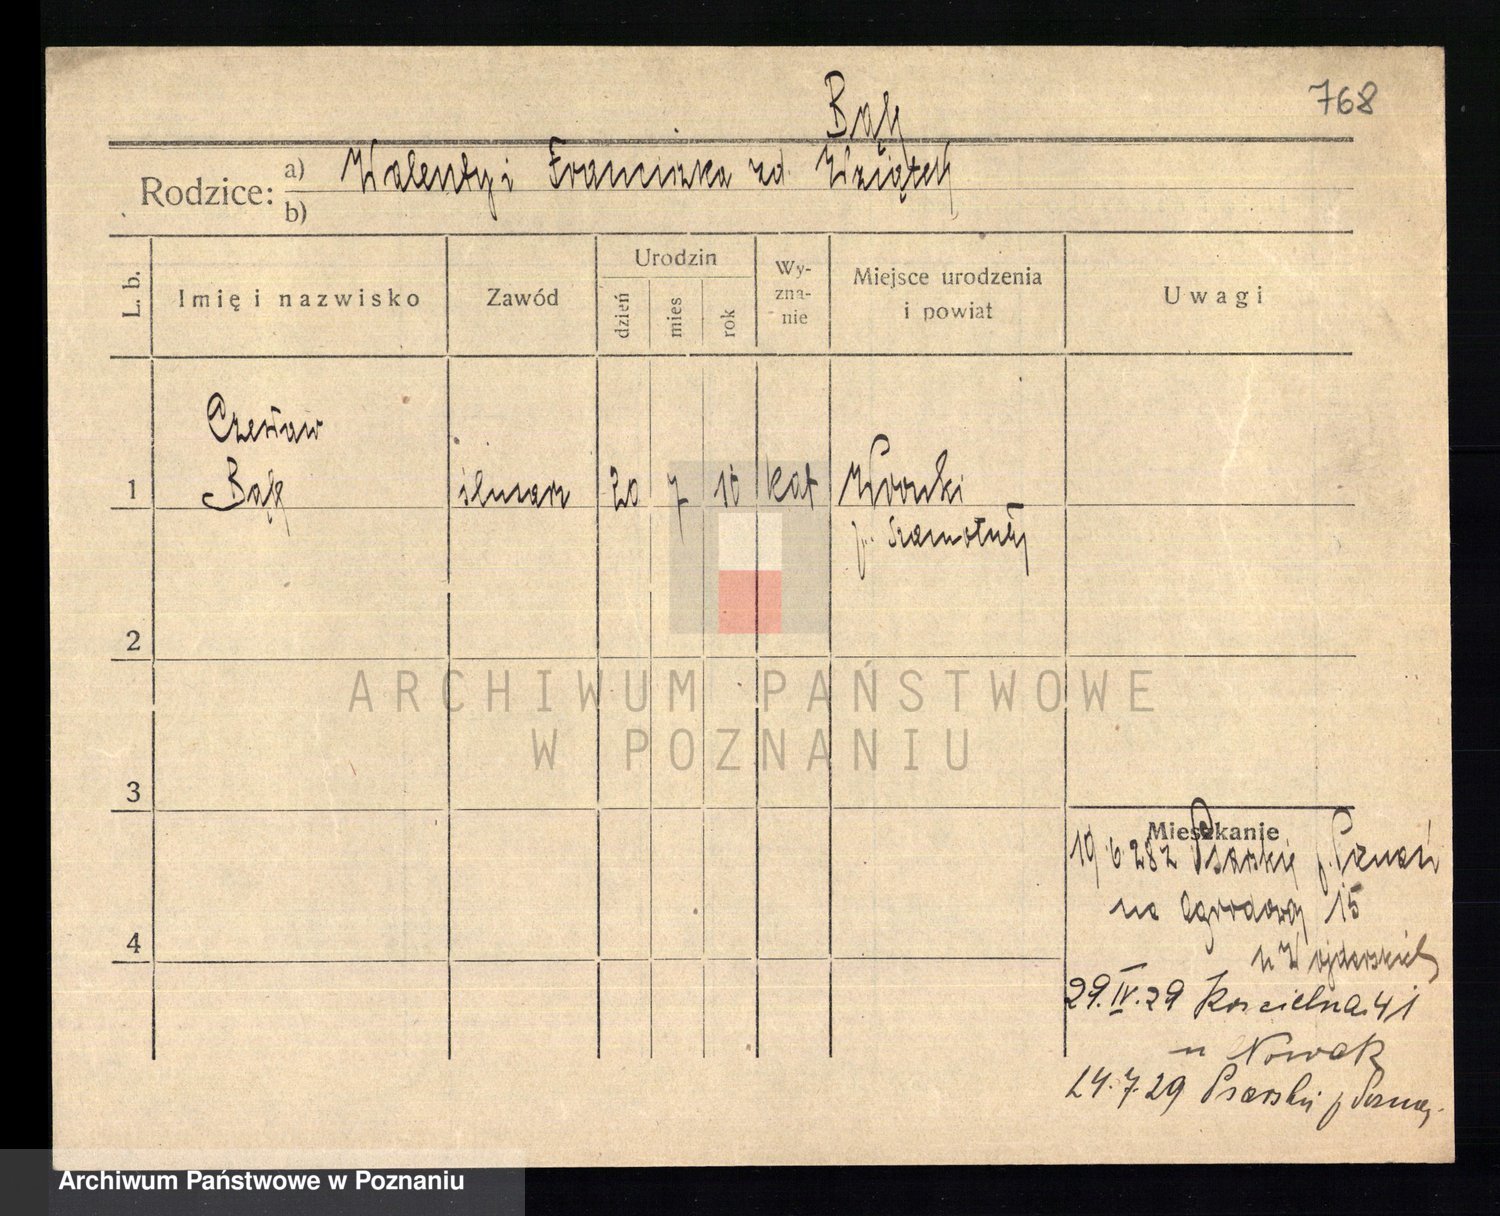 768
Bąk
Rodzice: a) Walenty i Franciszka zd. Wziątek
b)
L. b. Imię i nazwisko Zawód Urodzin dzień mies rok Wy-zna-nie Miejsce urodzenia i powiat Uwagi
Czesław
1 Bąk ślusarz 20 7 10 kat Wronki
p. Szamotuły
2
ARCHIWUM PAŃSTWOWE
W POZNANIU
3
Mieszkanie
19 6 28 Psarskie p. Poznań
na Ogrodowej 15
u
4
29.IV.29 Kościelna 41
u Nowak
24.7.29 Psarskie p Poznań
Archiwum Państwowe w Poznaniu